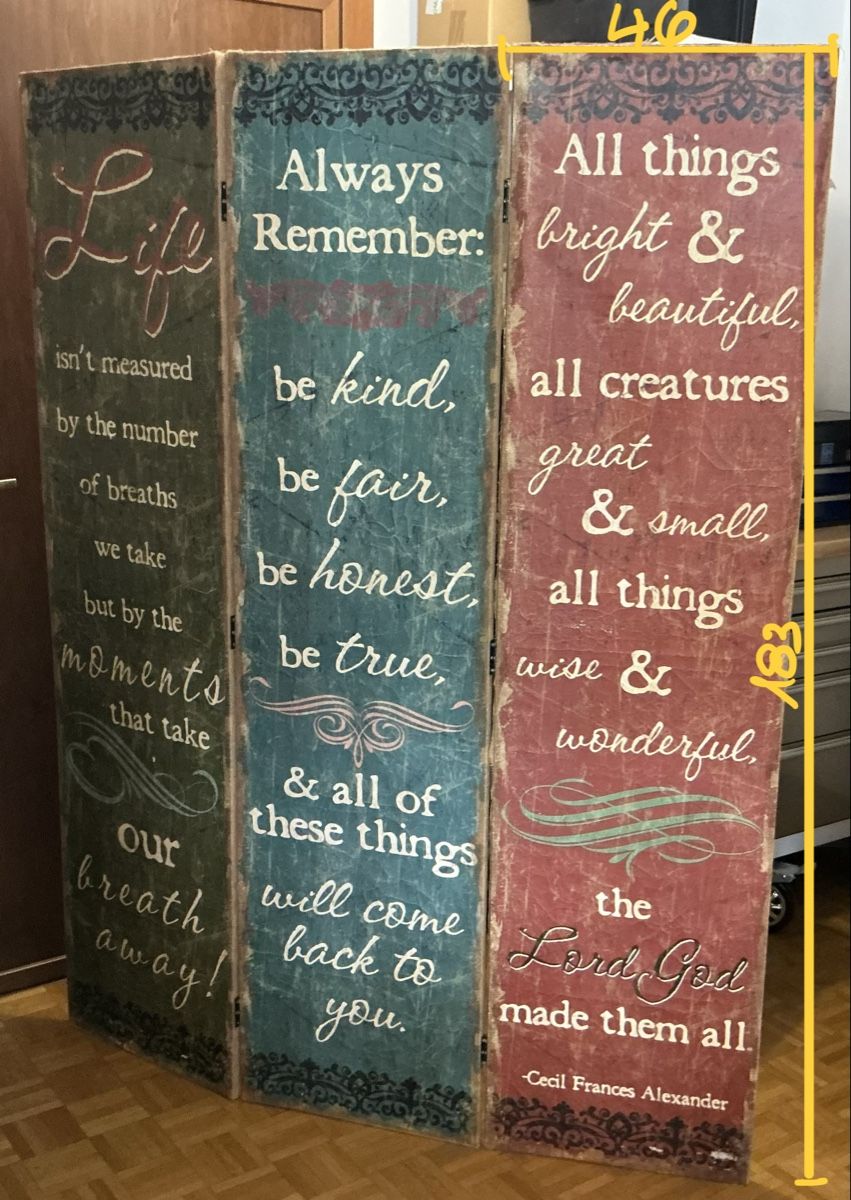 Life
isn't measured
by the number
of breaths
we take
but by the
moments
that take
our
breath
away!
Always
Remember:
be kind,
be fair,
be honest,
be true,
& all of
these things
will come
back to
you.
46
All things
bright &
beautiful,
all creatures
great
& small,
all things
wise &
wonderful,
the
Lord God
made them all.
-Cecil Frances Alexander
183